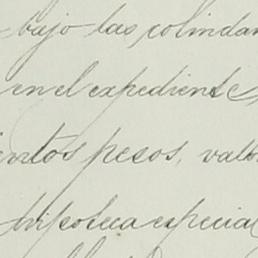 bajo las colindan
en el expediente,
ientos pesos, valo
hipoteca especial